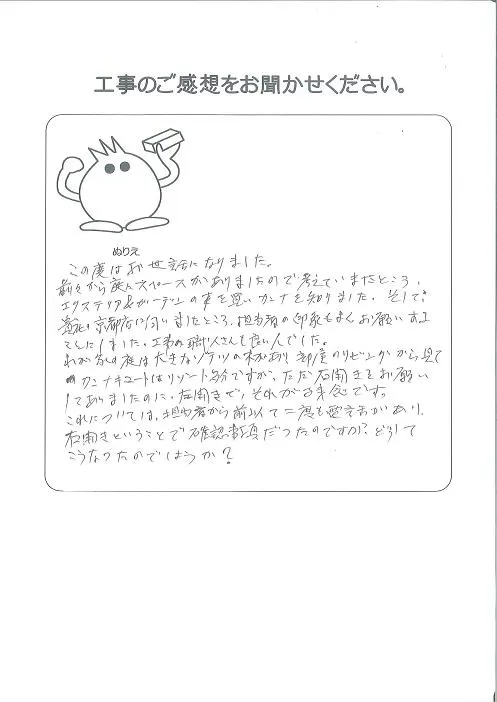 工事のご感想をお聞かせください。
ぬりえ
この度はお世話になりました。
前々から庭にスペースがありましたので考えていましたところ、
エクステリア&ガーデンの本を買いカンナを知りました。そして
京都店に伺いましたところ、担当者の印象もよく、お願いする
ことにしました。工事の職人さんも良い人でした。
わが家の庭は大きなソテツの木があり、部屋のリビングから見て
カンナキュートはリゾート気分ですが、ただ右開きをお願い
してありましたのに、左開きで、それが残念です。
これについては、担当者から前以て二度も電話があり、
右開きということで確認済だったのですが?どうして
こうなったのでしょうか?